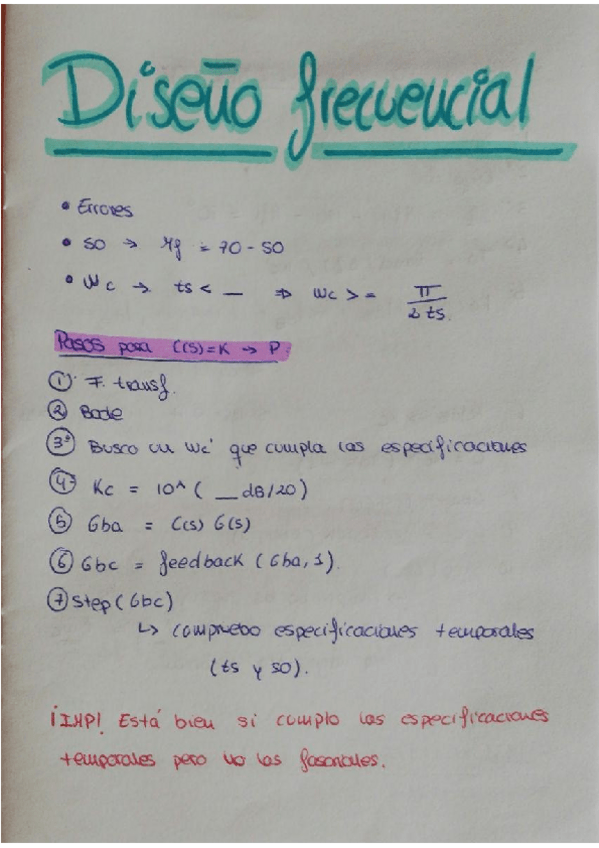 Diseño frecuencial
• Errores
• SO → Mf = 70 - SO
• Wc → ts < __ ⇒ Wc > = π / 2 ts.
Pasos para C(s)=K → P.
① F. transf.
② Bode
③º Busco un Wc' que cumpla las especificaciones
④º Kc = 10^ ( __ dB/20)
⑤ Gba = C(s) G(s)
⑥ Gbc = feedback (Gba, 1).
⑦ Step (Gbc)
↳ compruebo especificaciones temporales
(ts y SO).
¡IMP! Está bien si cumplo las especificaciones
temporales pero no las fasoriales.